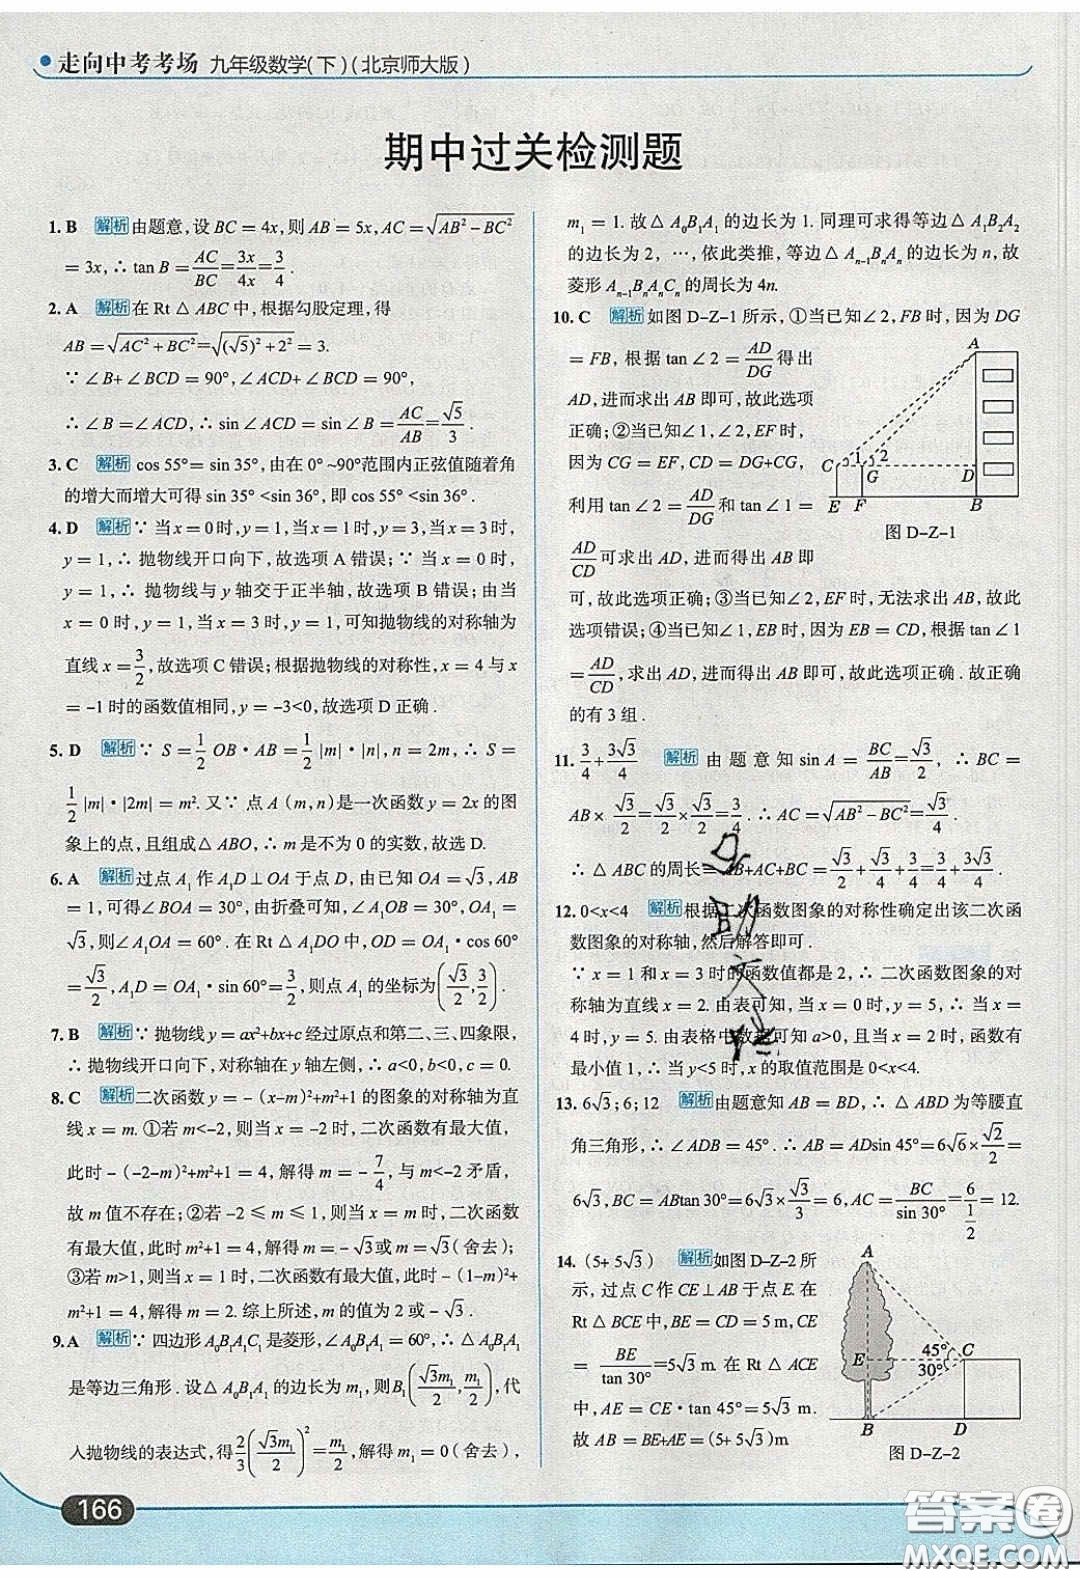 走向中考考场 九年级数学(下)(北京师大版)
期中过关检测题
1. B 解析 由题意,设 BC = 4x,则 AB = 5x, AC = √(AB²-BC²)
= 3x, ∴ tan B = AC/BC = 3x/4x = 3/4.
2. A 解析 在 Rt△ABC 中,根据勾股定理,得
AB = √(AC²+BC²) = √((√5)²+2²) = 3.
∵ ∠B+∠BCD = 90°, ∠ACD+∠BCD = 90°,
∴ ∠B = ∠ACD, ∴ sin∠ACD = sin∠B = AC/AB = √5/3.
3. C 解析 cos 55° = sin 35°,由在 0°~90°范围内正弦值随着角
的增大而增大可得 sin 35° < sin 36°,即 cos 55° < sin 36°.
4. D 解析 ∵ 当 x = 0 时, y = 1,当 x = 1 时, y = 3,当 x = 3 时,
y = 1, ∴ 抛物线开口向下,故选项 A 错误; ∵ 当 x = 0 时,
y = 1, ∴ 抛物线与 y 轴交于正半轴,故选项 B 错误;由当
x = 0 时, y = 1,当 x = 3 时, y = 1,可知抛物线的对称轴为
直线 x = 3/2,故选项 C 错误;根据抛物线的对称性, x = 4 与 x
= -1 时的函数值相同, y = -3<0,故选项 D 正确.
5. D 解析 ∵ S = 1/2 OB·AB = 1/2 |m|·|n|, n = 2m, ∴ S =
1/2 |m|·|2m| = m². 又∵ 点 A (m, n)是一次函数 y = 2x 的图
象上的点,且组成△ABO, ∴ m 是不为 0 的实数,故选 D.
6. A 解析 过点 A₁ 作 A₁D⊥OA 于点 D,由已知 OA = √3, AB
= 1,可得∠BOA = 30°,由折叠可知,∠A₁OB = 30°, OA₁ =
√3,则∠A₁OA = 60°. 在 Rt△A₁DO 中, OD = OA₁·cos 60°
= √3/2, A₁D = OA₁·sin 60° = 3/2,则点 A₁ 的坐标为(√3/2, 3/2).
7. B 解析 ∵ 抛物线 y = ax²+bx+c 经过原点和第二、三、四象限,
∴ 抛物线开口向下,对称轴在 y 轴左侧, ∴ a<0, b<0, c = 0.
8. C 解析 二次函数 y = -(x-m)²+m²+1 的图象的对称轴为直
线 x = m. ①若 m<-2,则当 x = -2 时,二次函数有最大值,
此时 -(-2-m)²+m²+1 = 4,解得 m = -7/4,与 m<-2 矛盾,
故 m 值不存在;②若 -2 ≤ m ≤ 1,则当 x = m 时,二次函数
有最大值,此时 m²+1 = 4,解得 m = -√3或 m = √3(舍去);
③若 m>1,则当 x = 1 时,二次函数有最大值,此时 -(1-m)²+
m²+1 = 4,解得 m = 2. 综上所述, m 的值为 2 或 -√3.
9. A 解析 ∵ 四边形 A₀B₁A₁C₁ 是菱形,∠A₀B₁A₁ = 60°, ∴ △A₀B₁A₁
是等边三角形. 设△A₀B₁A₁ 的边长为 m₁,则 B₁(√3m₁/2, m₁/2),代
入抛物线的表达式,得 2/3(√3m₁/2)² = m₁/2,解得 m₁ = 0(舍去),
m₁ = 1. 故△A₀B₁A₁ 的边长为 1. 同理可求得等边△A₁B₂A₂
的边长为 2, …,依此类推,等边△Aₙ₋₁BₙAₙ 的边长为 n,故
菱形 Aₙ₋₁BₙAₙCₙ 的周长为 4n.
10. C 解析 如图 D-Z-1 所示,①当已知∠2, FB 时,因为 DG
= FB,根据 tan∠2 = AD/DG 得出
AD,进而求出 AB 即可,故此选项
正确;②当已知∠1,∠2, EF 时,
因为 CG = EF, CD = DG+CG,
利用 tan∠2 = AD/DG 和 tan∠1 =
AD/CD 可求出 AD,进而得出 AB 即
可,故此选项正确;③当已知∠2, EF 时,无法求出 AB,故此
选项错误;④当已知∠1, EB 时,因为 EB = CD,根据 tan∠1
= AD/CD,求出 AD,进而得出 AB 即可,故此选项正确. 故正确
的有 3 组.
A
C 1 2
G D
E F B
图 D-Z-1
11. 3/4+3√3/4 解析 由题意知 sin A = BC/AB = √3/2, ∴ BC =
AB×√3/2 = √3/2×√3/2 = 3/4. ∴ AC = √(AB²-BC²) = √3/4.
∴ △ABC 的周长 = AB+AC+BC = √3/2+√3/4+3/4 = 3/4+3√3/4.
12. 0<x<4 解析 根据二次函数图象的对称性确定出该二次函
数图象的对称轴,然后解答即可.
∵ x = 1 和 x = 3 时的函数值都是 2, ∴ 二次函数图象的对
称轴为直线 x = 2. 由表可知,当 x = 0 时, y = 5, ∴ 当 x =
4 时, y = 5. 由表格中数据可知 a>0,且当 x = 2 时,函数有
最小值 1, ∴ 当 y<5 时, x 的取值范围是 0<x<4.
13. 6√3; 6; 12 解析 由题意知 AB = BD, ∴ △ABD 为等腰直
角三角形, ∴ ∠ADB = 45°. ∴ AB = ADsin 45° = 6√6×√2/2 =
6√3, BC = ABtan 30° = 6√3×√3/3 = 6, AC = BC/sin 30° = 6/(1/2) = 12.
14. (5+5√3) 解析 如图 D-Z-2 所
示,过点 C 作 CE⊥AB 于点 E. 在
Rt△BCE 中, BE = CD = 5 m, CE
= BE/tan 30° = 5√3 m. 在 Rt△ACE
中, AE = CE·tan 45° = 5√3 m.
故 AB = BE+AE = (5+5√3) m.
A
45°
30°
E C
B D
图 D-Z-2
166
答案圈
MXQE.COM